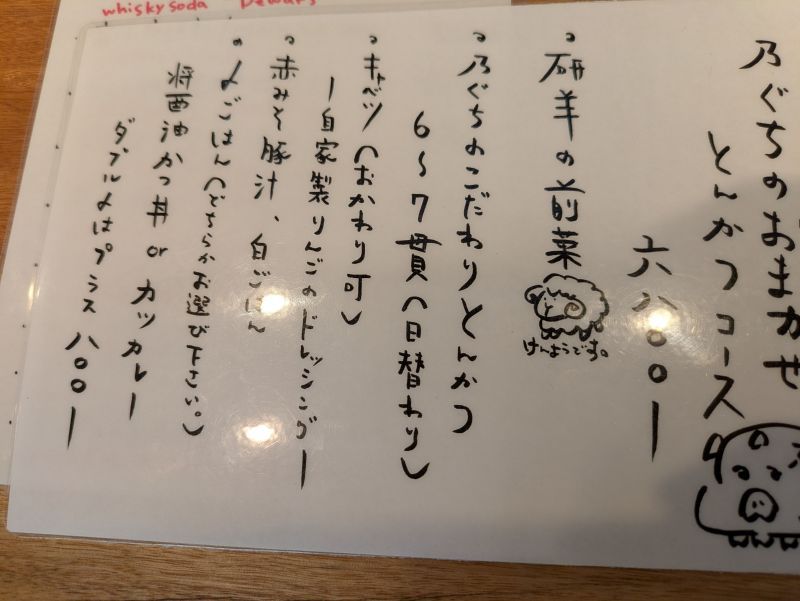 whisky soda Dewars
乃ぐちのおまかせ
とんかつコース
六八〇〇ー
・研羊の前菜
けんようです。
・乃ぐちのこだわりとんかつ
6〜7貫(日替わり)
・キャベツ(おかわり可)
ー自家製りんごのドレッシングー
・赤みそ豚汁、白ごはん
・〆ごはん(どちらかお選び下さい。)
醤油かつ丼 or カツカレー
ダブル〆はプラス八〇〇ー